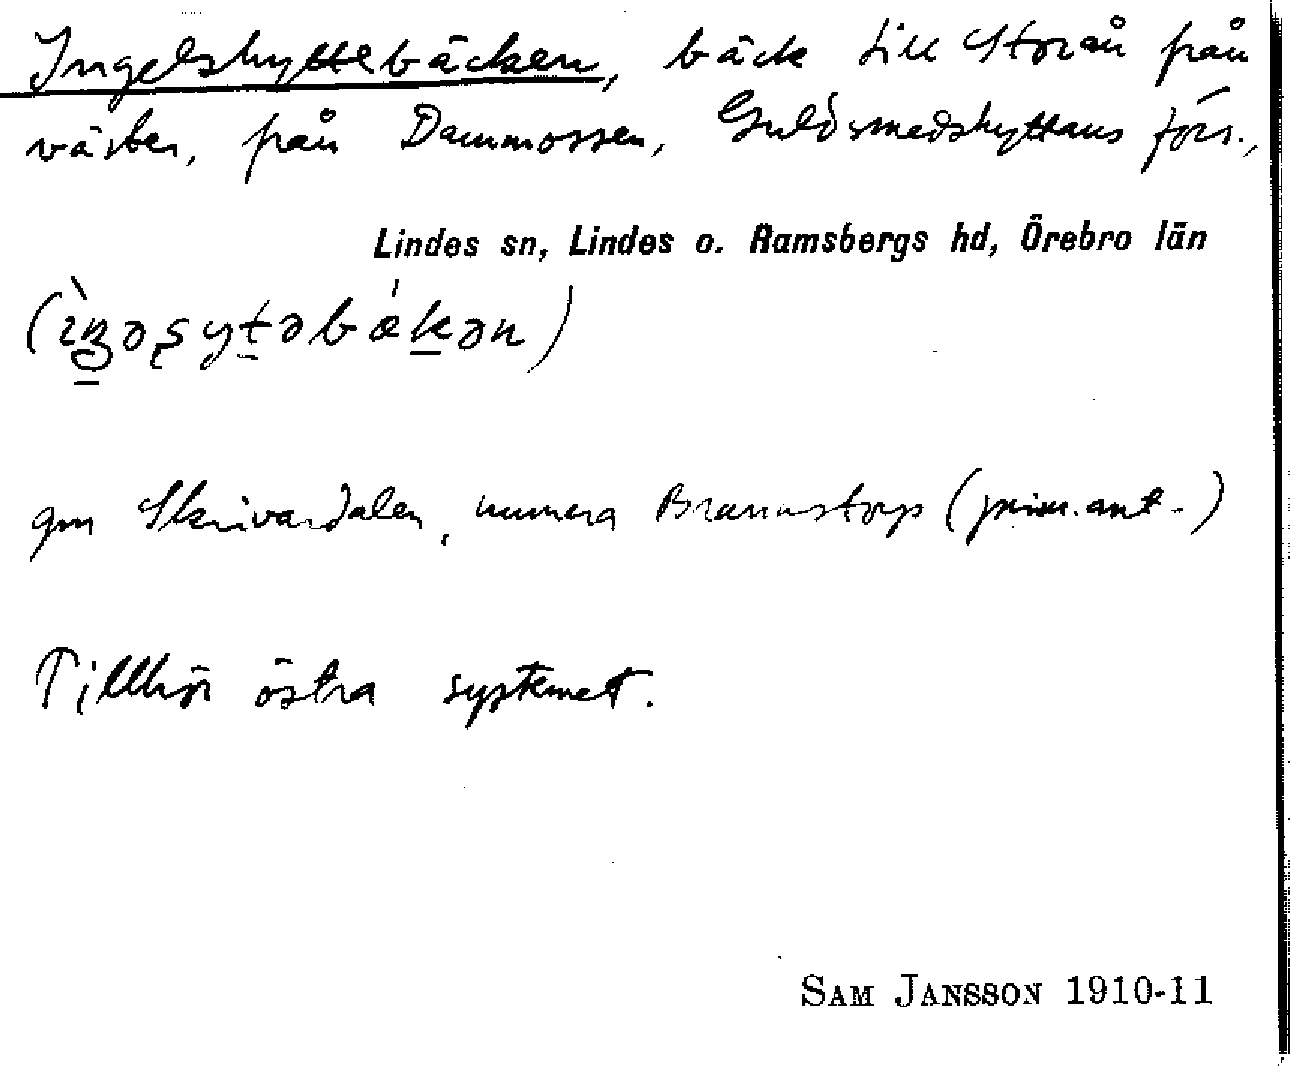 Ingelshyttebäcken, bäck till Storån från
väster, från Dammossen, Guldsmedshyttans förs.,
Lindes sn, Lindes o. Ramsbergs hd, Örebro län
gm Skrivardalen, numera Brannstorp (prim. ant.)
Tillhör östra systemet.
SAM JANSSON 1910-11